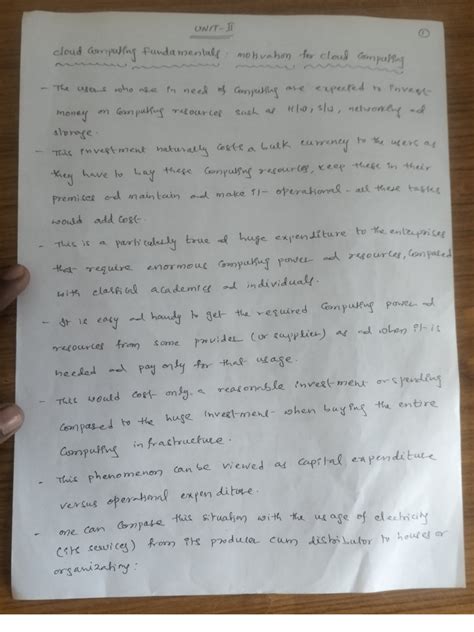 UNIT-II
1
cloud Computing Fundamentals: motivation for cloud Computing
- The users who are in need of Computing are expected to invest
money on Computing resources such as H/W, S/W, networking and
storage.
- This investment naturally costs a bulk currency to the users as
they have to buy these Computing resources, keep these in their
premises and maintain and make it operational - all these tasks
would add cost.
- This is a particularly true of huge expenditure to the enterprises
that require enormous Computing power and resources, Compared
with classical academics and individuals.
- It is easy and handy to get the required Computing power and
resources from some provider (or supplier) as and when it is
needed and pay only for that usage.
- This would cost only a reasonable investment or spending
Compared to the huge investment when buying the entire
Computing infrastructure.
- This phenomenon can be viewed as capital expenditure
versus operational expenditure.
- one can Compare this situation with the usage of electricity
(its services) from its producer cum distributor to houses or
organizations: